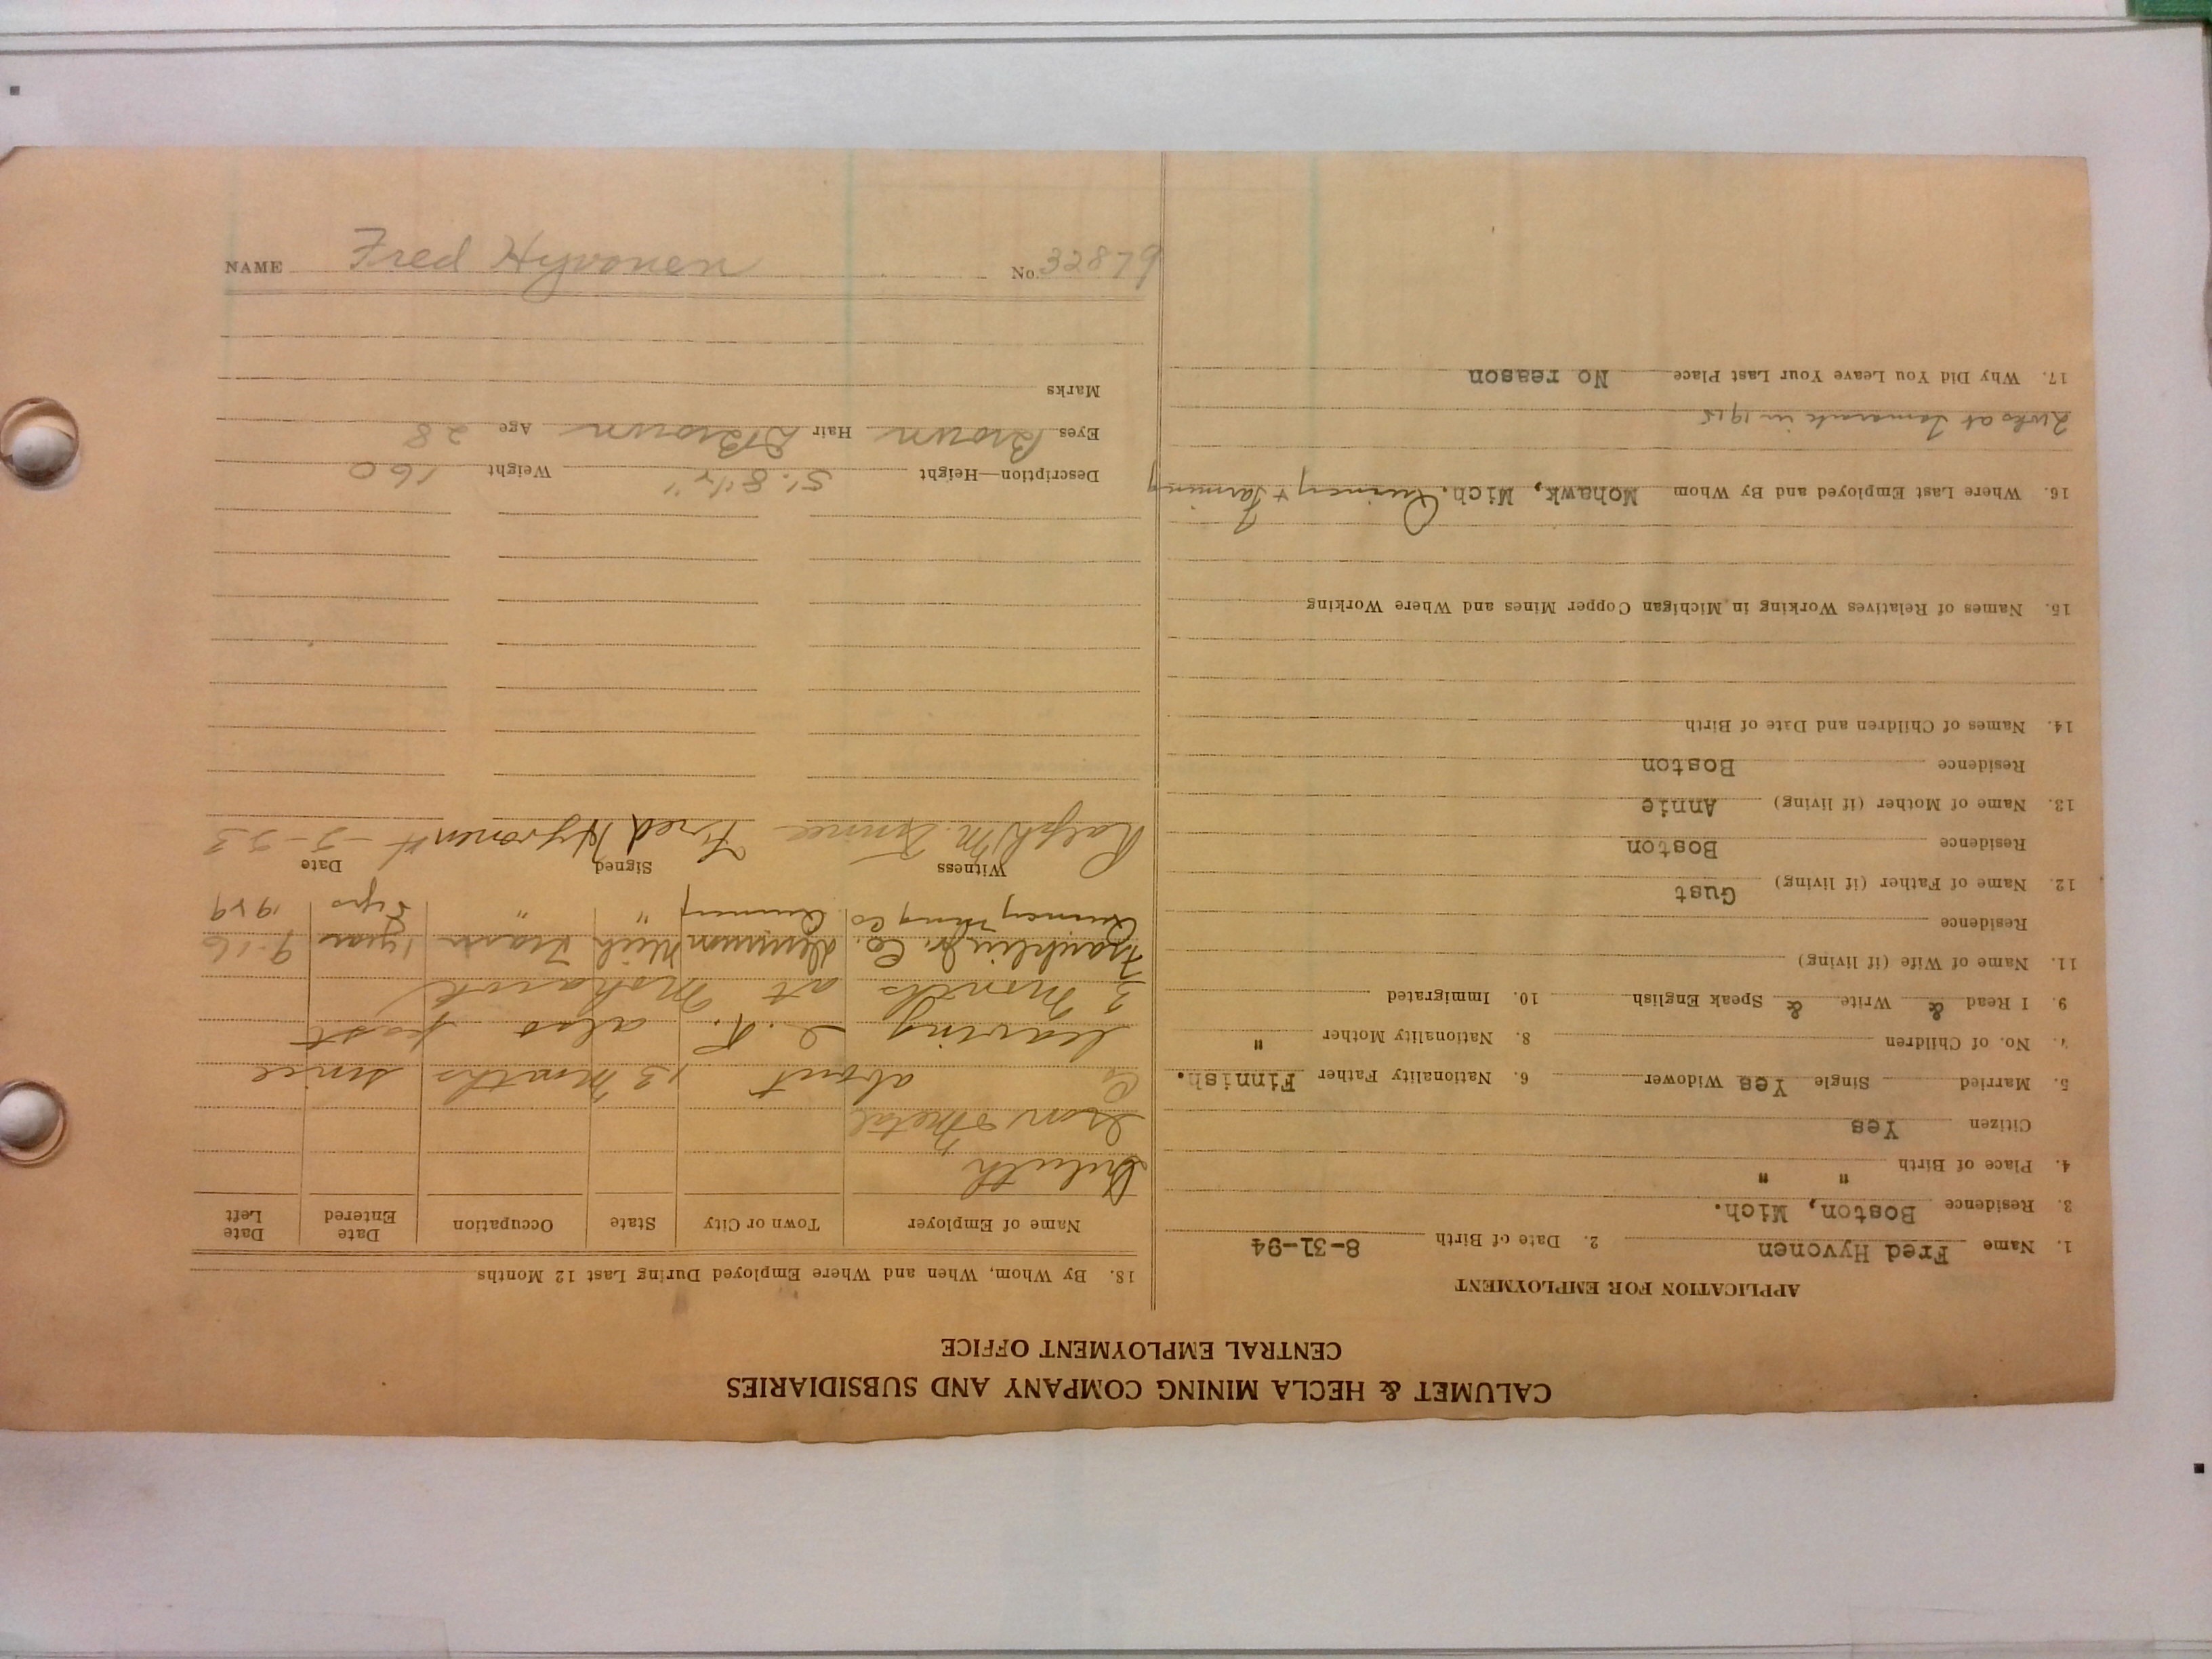 CALUMET & HECLA MINING COMPANY AND SUBSIDIARIES
CENTRAL EMPLOYMENT OFFICE
APPLICATION FOR EMPLOYMENT
1. Name Fred Hyvonen 2. Date of Birth 8-31-94
3. Residence Boston, Mich.
4. Place of Birth " "
Citizen Yes
5. Married Single Yes Widower 6. Nationality Father Finnish.
7. No. of Children 8. Nationality Mother "
9. I Read & Write & Speak English 10. Immigrated
11. Name of Wife (if living)
Residence
12. Name of Father (if living) Gust
Residence Boston
13. Name of Mother (if living) Annie
Residence Boston
14. Names of Children and Date of Birth
15. Names of Relatives Working in Michigan Copper Mines and Where Working
16. Where Last Employed and By Whom Mohawk, Mich. Quincy + Farming
2 wks at Tamarack in 1915
17. Why Did You Leave Your Last Place No reason
18. By Whom, When and Where Employed During Last 12 Months
Name of Employer Town or City State Occupation Date Entered Date Left
Duluth
Iron & Metal
Co about 13 Months since
leaving also past
3 Months at Mohawk
Franklin Co. Mich 1 year 9-16
Quincy Mng Co Quincy " " 2 yrs 1919
Witness Signed Date
Ralph M. Fred Hyvonen 4-3-23
Description—Height 5' 8 1/2" Weight 160
Eyes Brown Hair D Brown Age 28
Marks
NAME Fred Hyvonen No. 32879